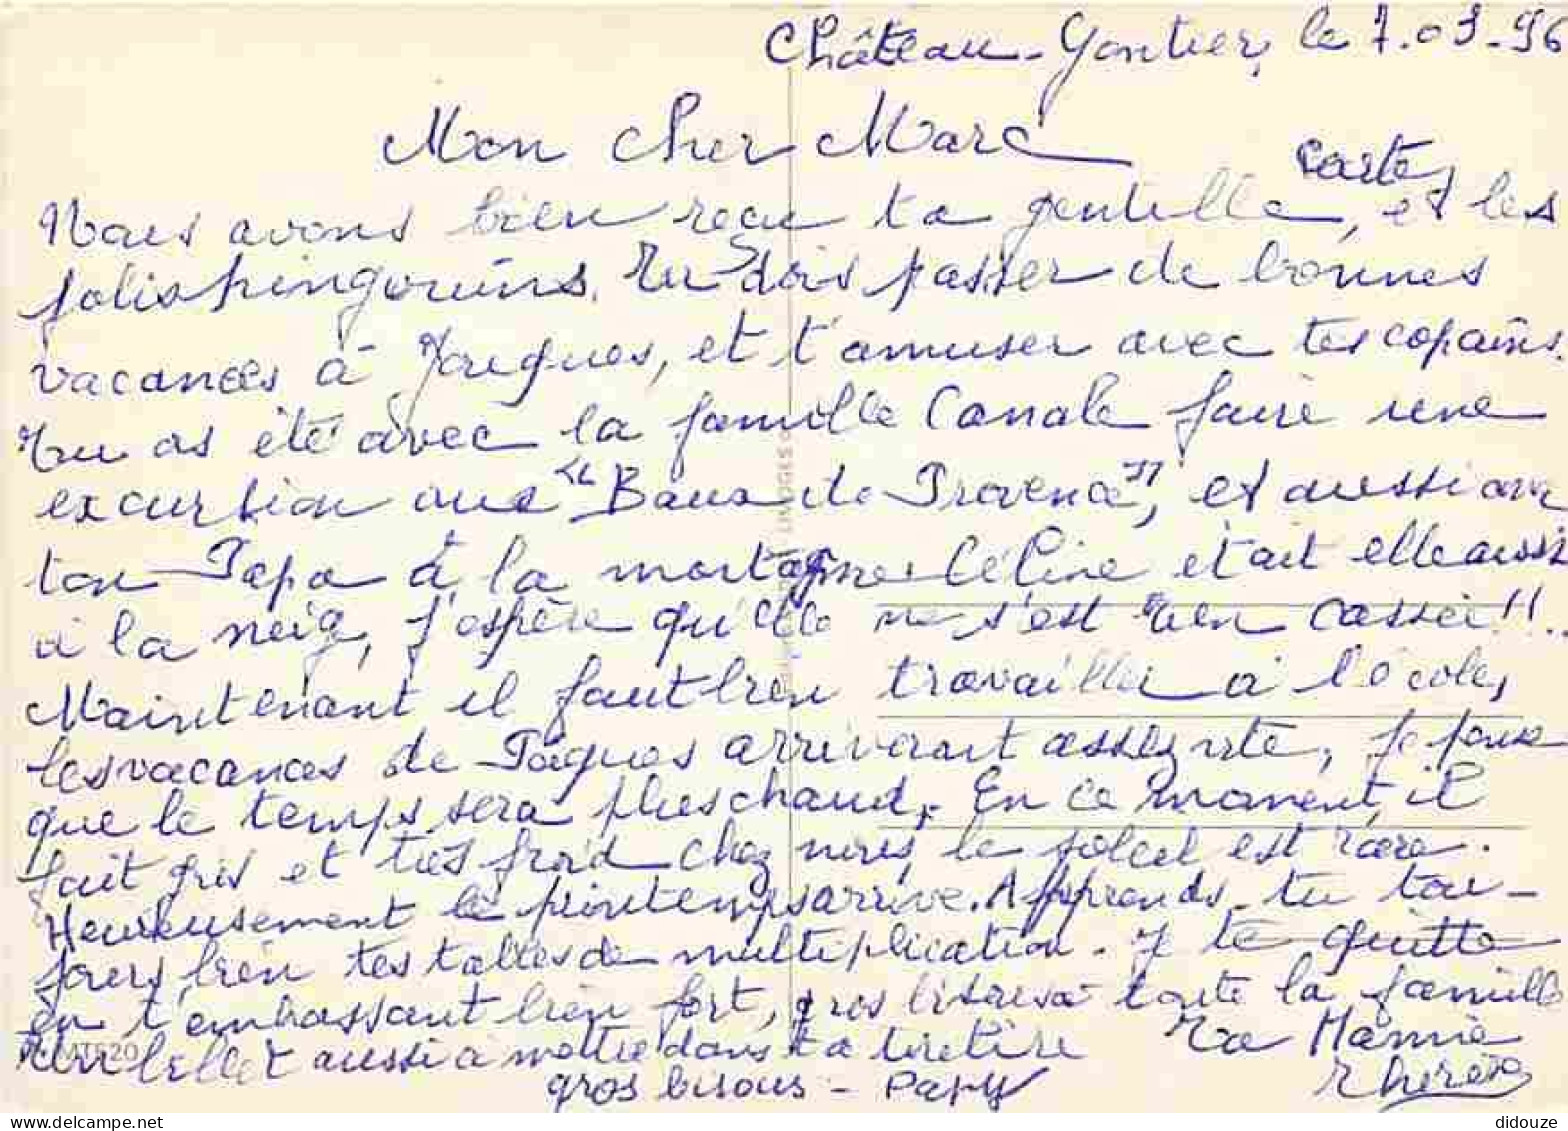 Château-Gontier, le 7.03-96
Mon cher Marc
carte,
Nous avons bien reçu ta gentille, et les
jolis pingouins. Tu dois passer de bonnes
vacances à Jouques, et t'amuser avec tes copains.
Tu as été avec la famille Canale faire une
excursion aux "Baux de Provence", et aussi avec
ton Papa à la montagne. Céline était elle aussi
à la neige, j'espère qu'elle ne s'est rien cassée!!..
Maintenant il faut bien travailler à l'école,
les vacances de Pâques arriveront assez vite, je pense
que le temps sera plus chaud,. En ce moment, il
fait gris et très froid chez nous, le soleil est rare.
Heureusement le printemps arrive. Apprends-tu tou-
jours bien tes tables de multiplication. Je te quitte
en t'embrassant bien fort, gros bisous à toute la famille
Un billet aussi à mettre dans ta tirelire Ta Mamie
gros bisous - Papy Thérèse
MTF20
LIMOGES
didouze